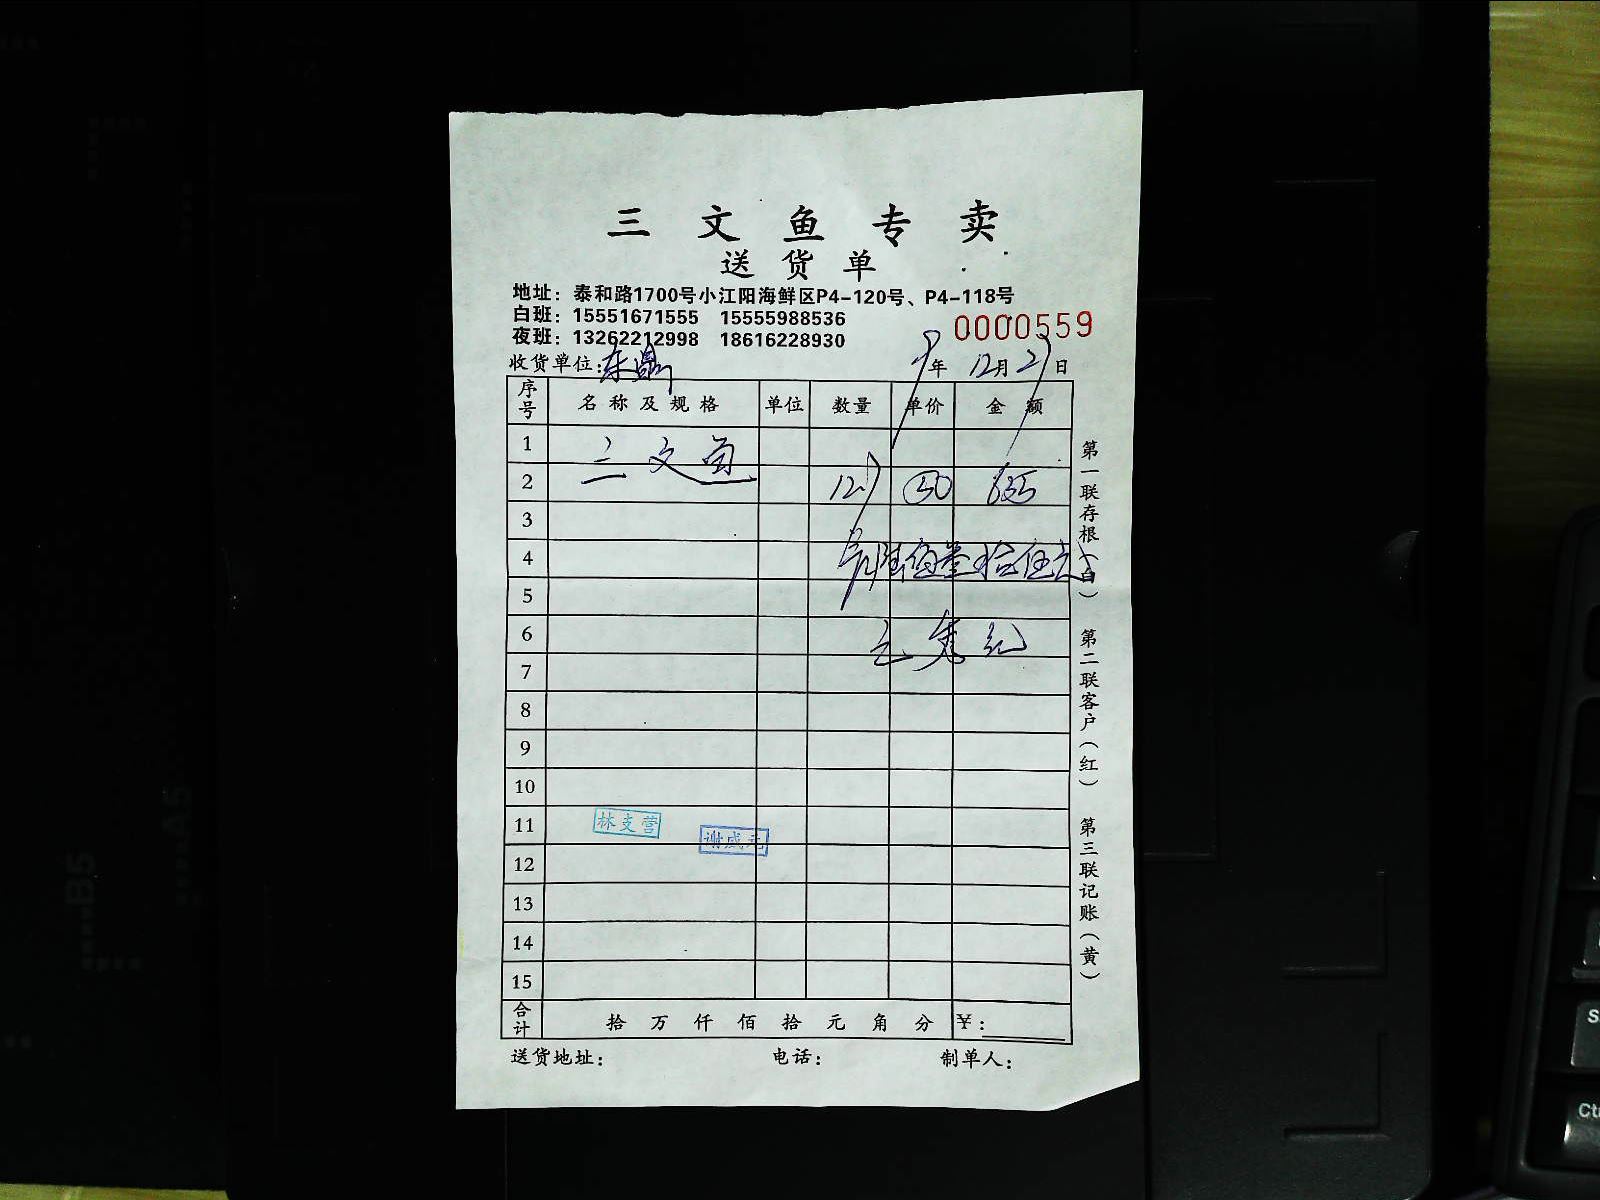 三文鱼专卖
送货单
地址：泰和路1700号小江阳海鲜区P4-120号、P4-118号
白班：15551671555 15555988536
夜班：13262212998 18616228930
0000559
收货单位：东鼎 年 12月2 日
序号 名称及规格 单位 数量 单价 金额
1 三文鱼
2 50 635
3
4 陆佰叁拾伍元
5
6
7
8
9
10
11 林支营 谢成元
12
13
14
15
合计 拾 万 仟 佰 拾 元 角 分 ￥：
送货地址： 电话： 制单人：
第一联存根（白） 第二联客户（红） 第三联记账（黄）
B5
A5
S
Ct